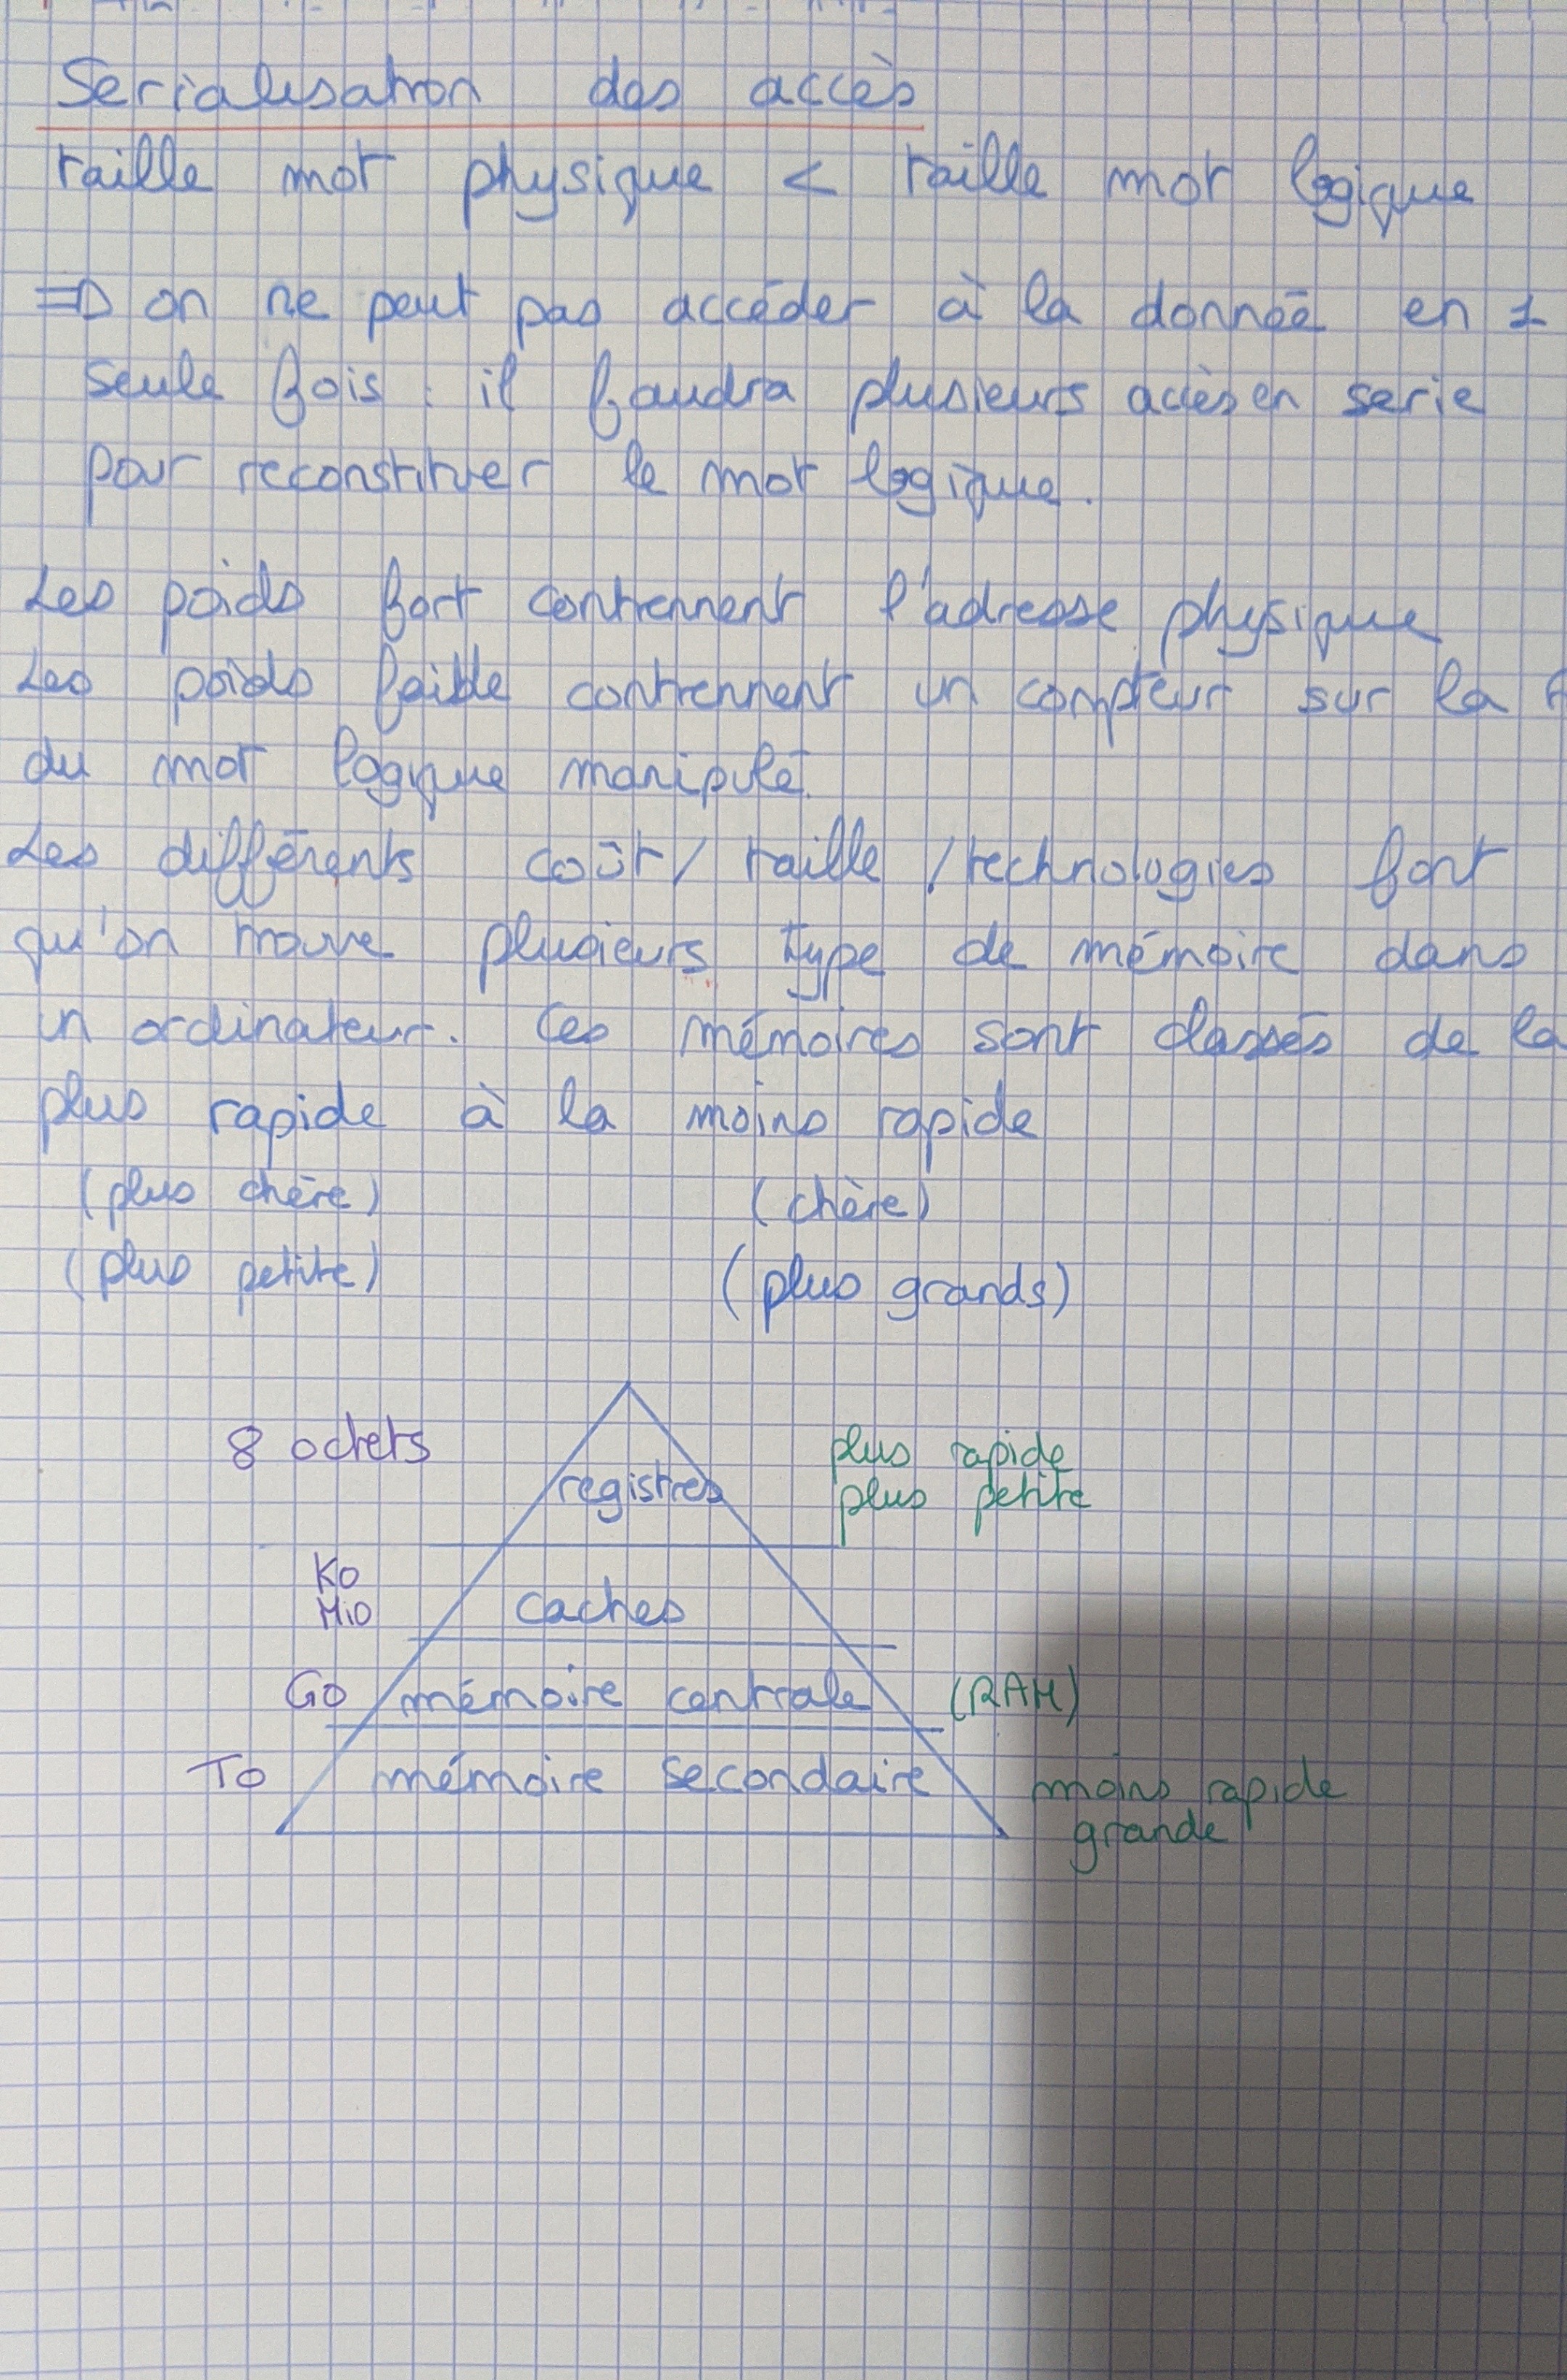 Serialisation des accès
taille mot physique < taille mot logique
=> on ne peut pas accéder à la donnée en 1
seule fois : il faudra plusieurs accès en serie
pour reconstituer le mot logique.
Les poids fort contiennent l'adresse physique
Les poids faible contiennent un compteur sur la
du mot logique manipulé.
Les différents coût / taille / technologies font
qu'on trouve plusieurs type de mémoire dans
un ordinateur. Ces mémoires sont classés de la
plus rapide à la moins rapide
(plus chère) (chère)
(plus petite) (plus grands)
8 octets registres plus rapide
plus petite
Ko
Mio caches
Go mémoire centrale (RAM)
To mémoire secondaire moins rapide
grande